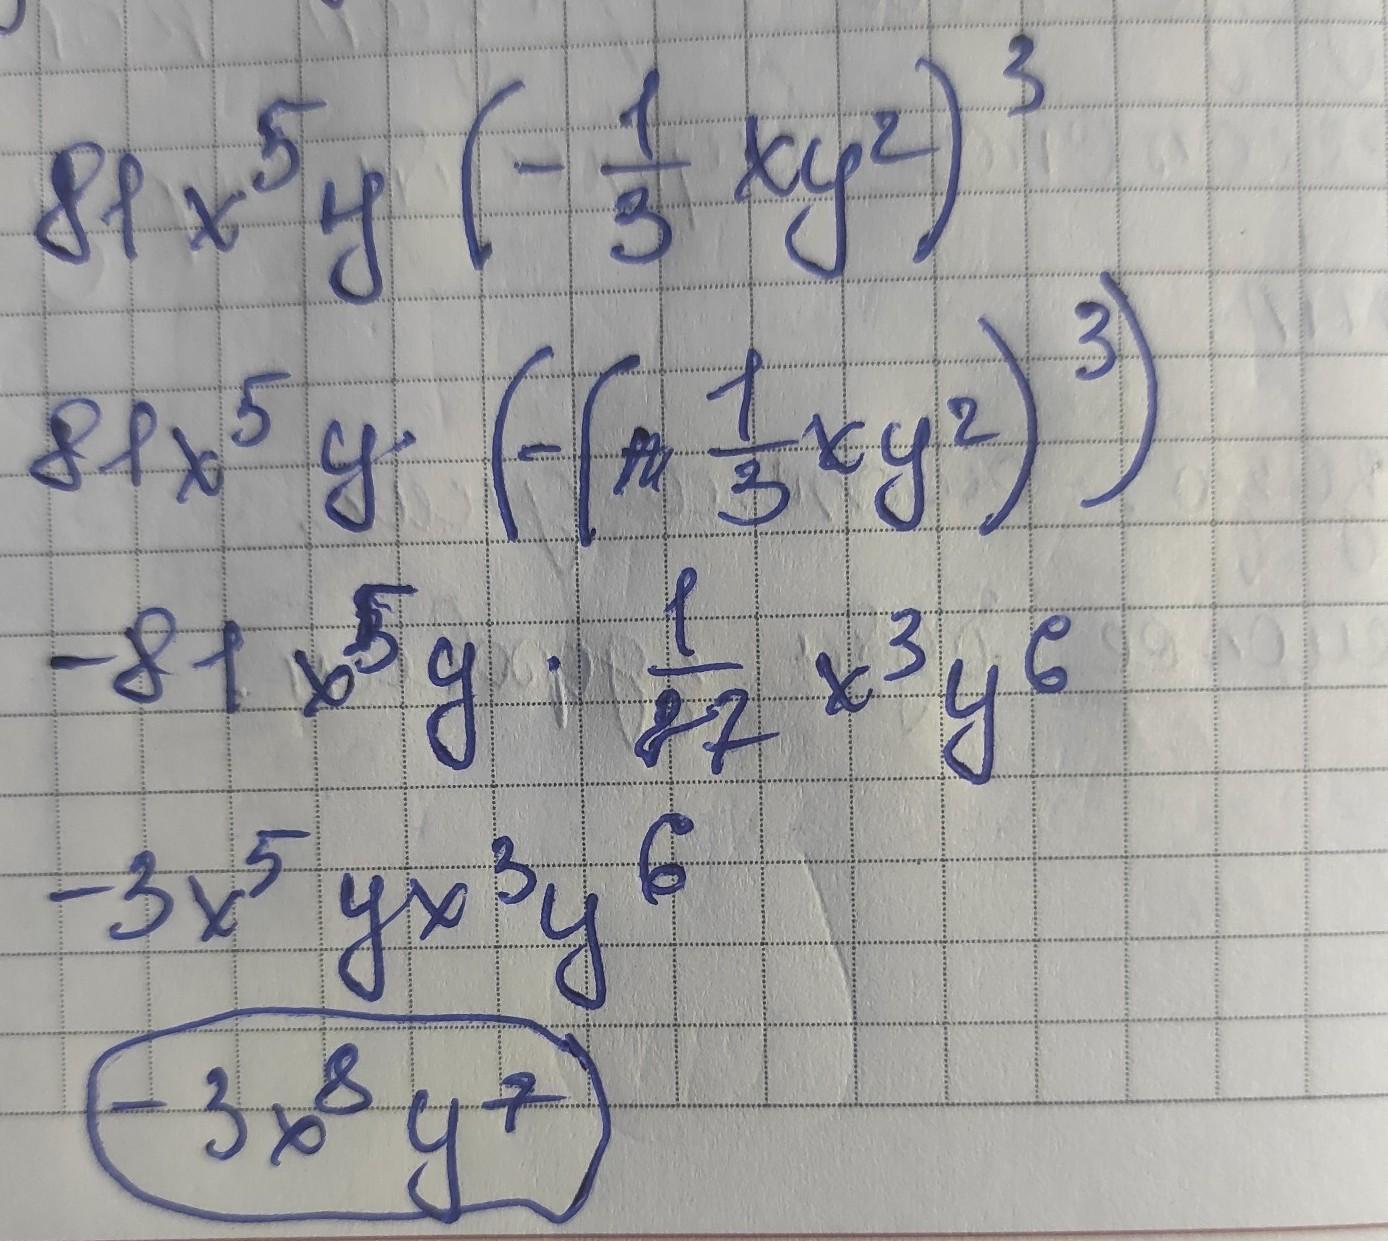 81x⁵y (-1/3 xy²)³
81x⁵y· (-(1/3 xy²)³)
-81x⁵y · 1/27 x³y⁶
-3x⁵yx³y⁶
-3x⁸y⁷